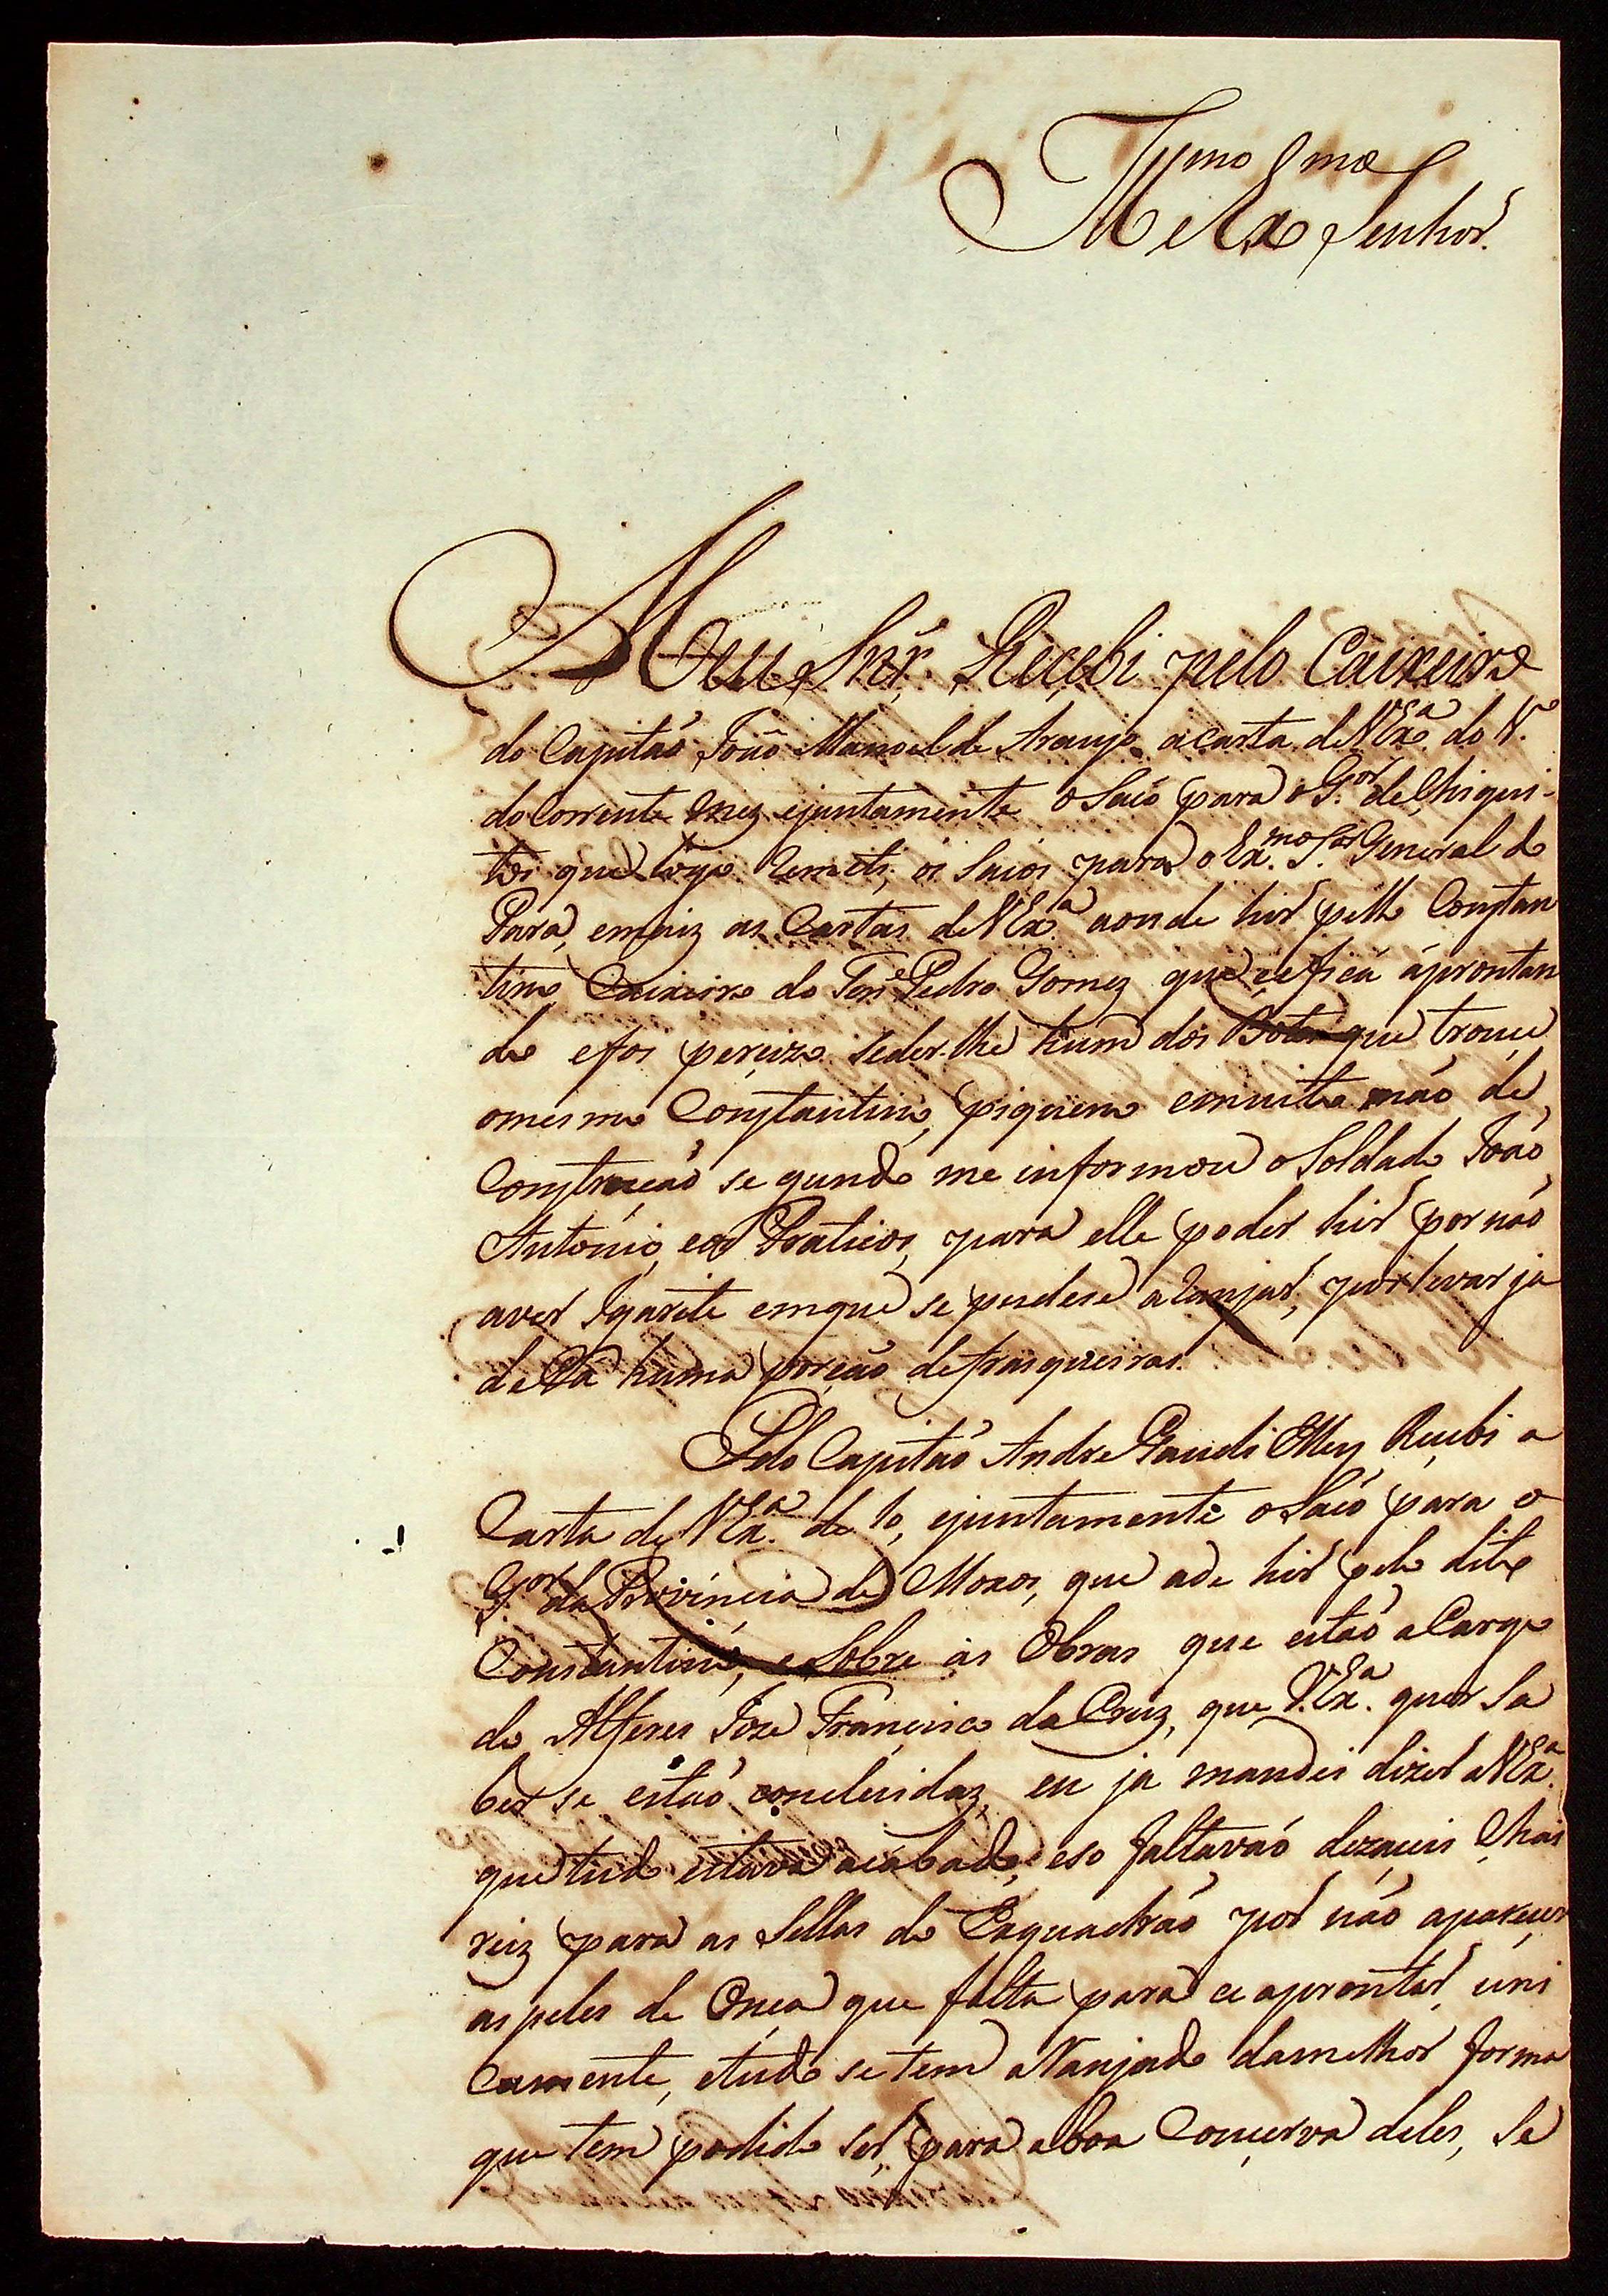 Illmo e Exmo Senhor.
Meu Snr. Recebi pelo Caixeiro
do Capitaõ João Manoel de Araujo a carta de VExa. do
do Corrente mez ejuntamente o Saco para o Gor. de Chiqui-
tos que logo Remeti, os Sacos para o Exmo. Sor. General do
Pará, as Cartas de VExa. aonde hir pello Constan
tino Caixeiro do Tene. Pedro Gomez que ce fica áprontan
do efoi perçizo seder-lhe hum dos Botes que trouçe
omesmo Constantino, piqueno emuito máo de
Construçaõ segundo me informou o Soldado Joaõ
Antonio, eos Praticos, para elle poder hir por naõ
aver Igarite emque se pudese aRanjar, por levar ja
de lá huma porçaõ defrasqueiras.
Pelo Capitaõ Andre Gaudi Elley, Reçubi a
Carta de VExa. de 10, ejuntamente o Saco para o
Gor. da Provincia de Moxos, que ade hir pelo dito
Constantino, e Sobre as Obras que estaõ a Cargo
do Alferes Joze Francisco da Cruz, que V.Exa. quer Sa
ber se estaõ concluidaz, eu ja mandei dizer a VExa.
que tudo estava acabado, eso faltavaõ dezaceis Chai
reiz para as Sellas do Esquadraõ por naõ apareçer
as peles de Onça que falta para ce aprontar, uni
camente, etudo se tem aRanjado damelhor forma
que tem podido ser, para aboa Conçerva deles, se